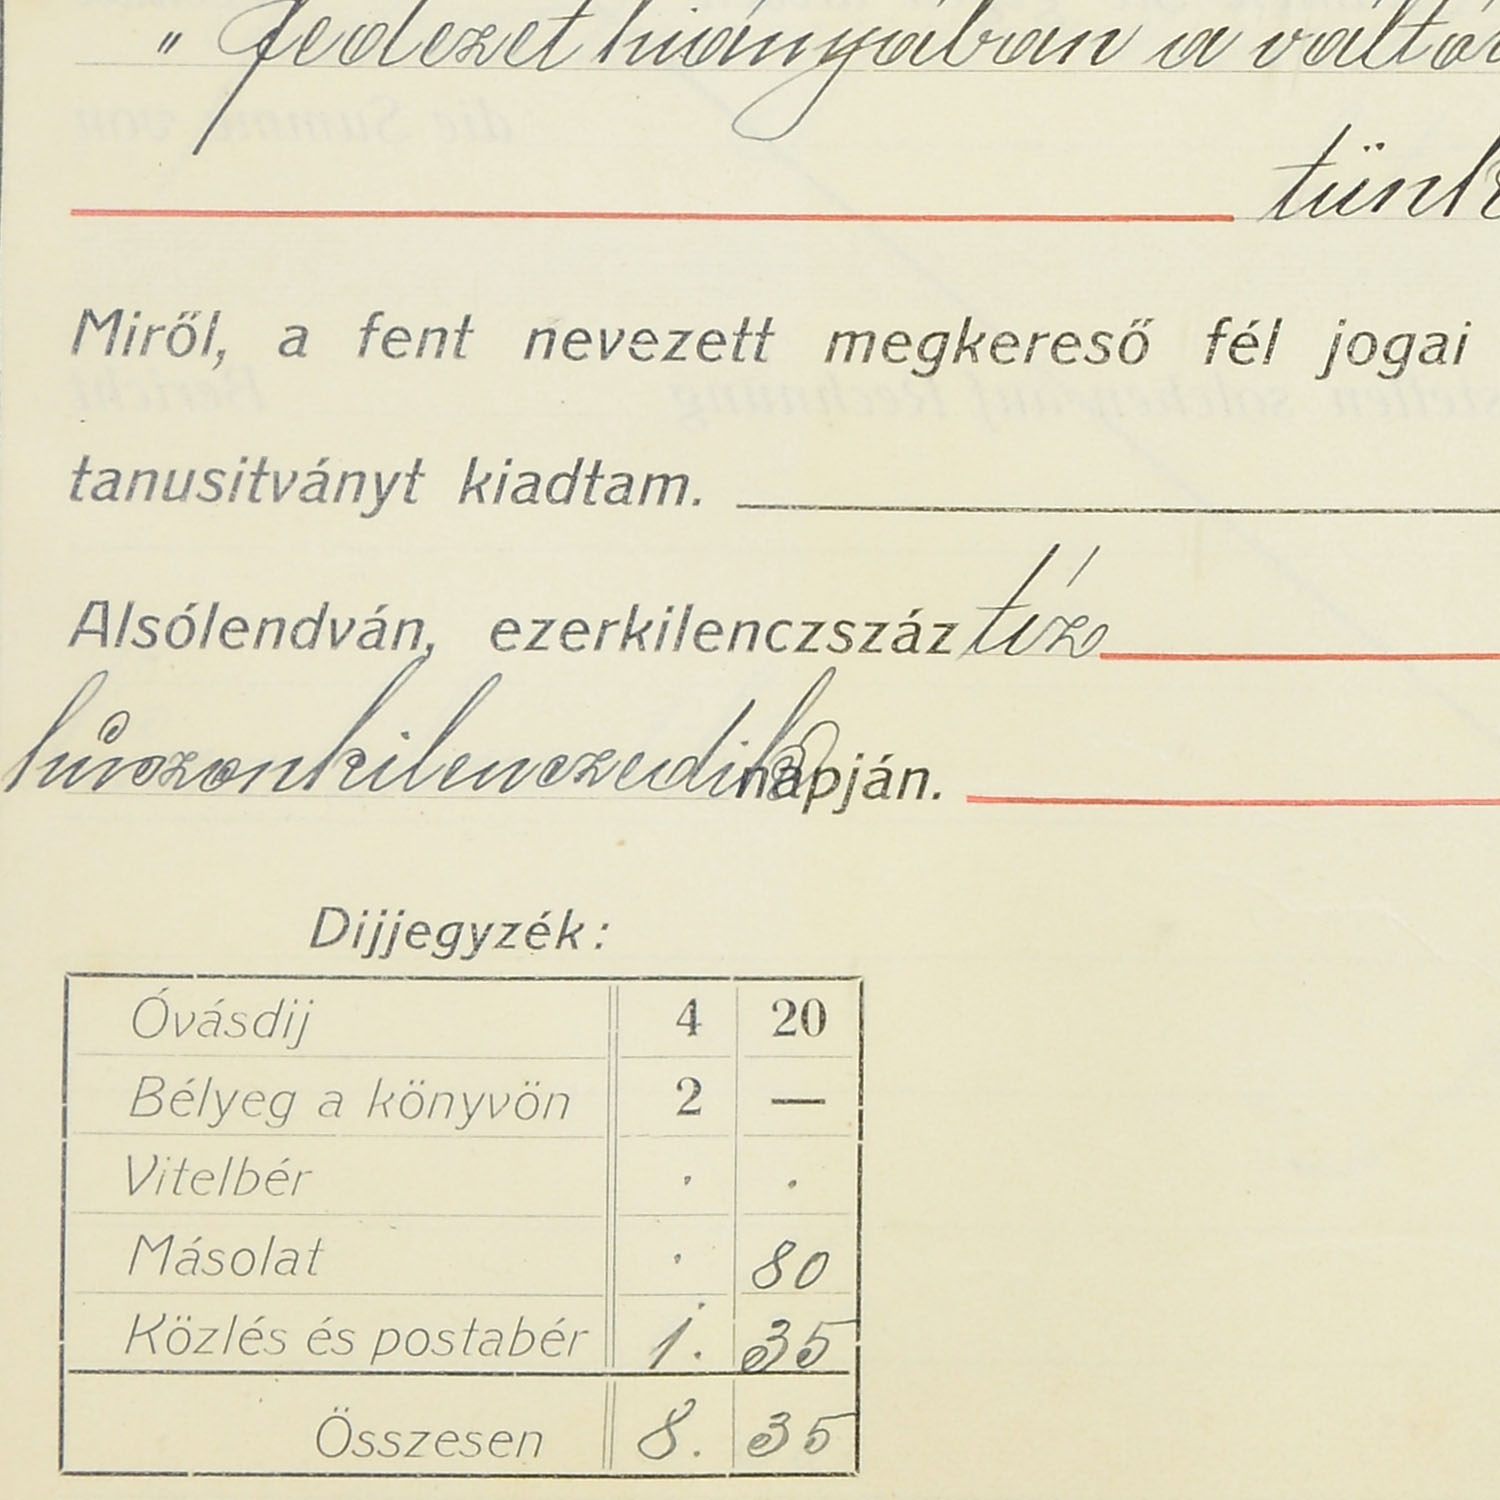 " fedezet hiányában a váltó
tünk
Miről, a fent nevezett megkereső fél jogai
tanusitványt kiadtam.
Alsólendván, ezerkilenczszáz tíz
húszonkilenczedik napján.
Dijjegyzék:
Óvásdij 4 20
Bélyeg a könyvön 2 —
Vitelbér . .
Másolat . 80
Közlés és postabér 1. 35
Összesen 8. 35